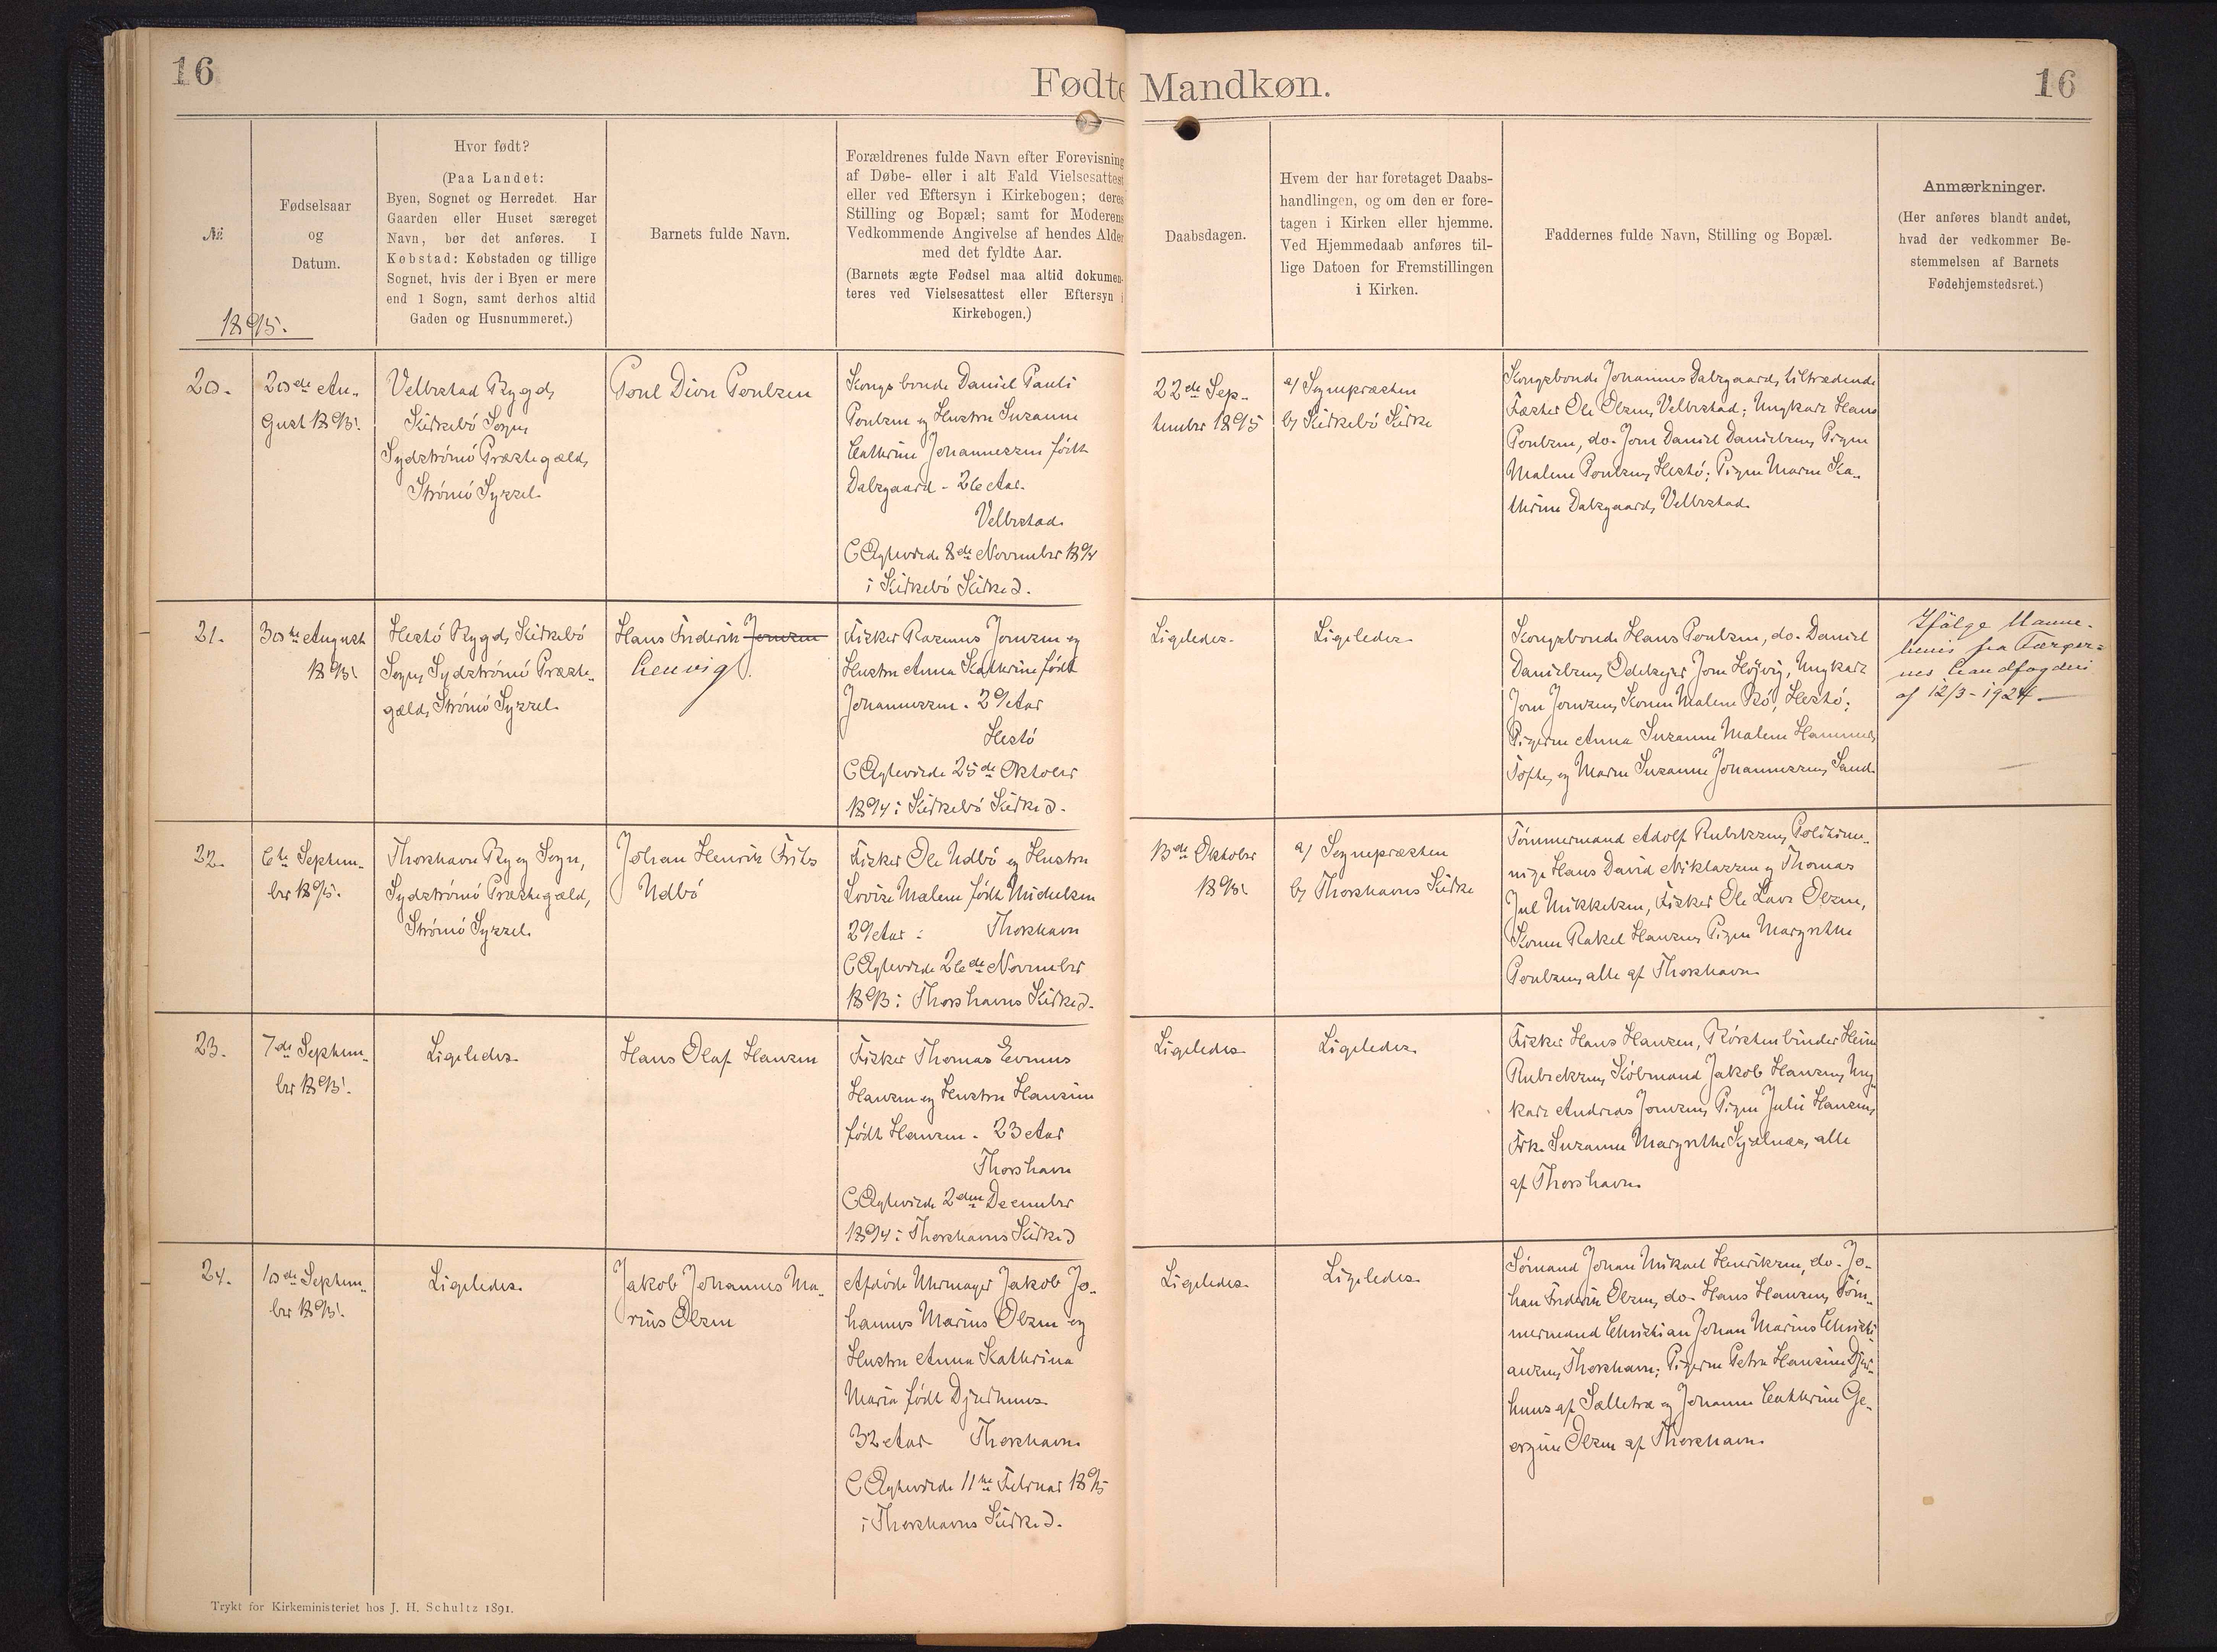 16
Fødte Mandkøn.
16
№
1895.
Fødselsaar
og
Datum.
Hvor født?
(Paa Landet:
Byen, Sognet og Herredet. Har
Gaarden eller Huset særeget
Navn, bør det anføres. I
Købstad: Købstaden og tillige
Sognet, hvis der i Byen er mere
end 1 Sogn, samt derhos altid
Gaden og Husnummeret.)
Barnets fulde Navn.
Forældrenes fulde Navn efter Forevisning
af Døbe- eller i alt Fald Vielsesattest
eller ved Eftersyn i Kirkebogen; deres
Stilling og Bopæl; samt for Moderens
Vedkommende Angivelse af hendes Alder
med det fyldte Aar.
(Barnets ægte Fødsel maa altid dokumen-
teres ved Vielsesattest eller Eftersyn i
Kirkebogen.)
Daabsdagen.
Hvem der har foretaget Daabs-
handlingen, og om den er fore-
tagen i Kirken eller hjemme.
Ved Hjemmedaab anføres til-
lige Datoen for Fremstillingen
i Kirken.
Faddernes fulde Navn, Stilling og Bopæl.
Anmærkninger.
(Her anføres blandt andet,
hvad der vedkommer Be-
stemmelsen af Barnets
Fødehjemstedsret.)
20.
20de Au-
gust 1895.
Velbestad Bygd,
Kirkebø Sogn,
Sydstrømø Præstegæld,
Strømø Syssel.
Poul Dion Poulsen
Kongsbonde Daniel Pauli
Poulsen og Hustru Susanne
Cathrine Johannessen født
Dalsgaard - 26 Aar.
Velbestad.
(Ægteviede 8de November 1894
i Kirkebø Kirke).
22de Sep-
tember 1895
a) Sognepræsten
b) Kirkebø Kirke
Kongsbonde Johannes Dalsgaard, tiltrædende
Fæster Ole Olsen, Velbestad; Ungkarl Hans
Poulsen, do. Joen Daniel Danielsen, Pigen
Malene Poulsen, Hestø; Pigen Maren Ka-
thrine Dalsgaard, Velbestad.
21.
30te August
1895.
Hestø Bygd, Kirkebø
Sogn, Sydstrømø Præste-
gæld, Strømø Syssel.
Hans Frederik Joensen
Lenvig.
Fisker Rasmus Joensen og
Hustru Anna Kathrine født
Johannessen. 29 Aar
Hestø
(Ægteviede 25de Oktober
1894 i Kirkebø Kirke).
Ligeledes.
Ligeledes.
Kongsbonde Hans Poulsen, do. Daniel
Danielsen, Odelsejer Joen Højvig, Ungkarl
Joen Joensen, Konen Malene Bø, Hestø;
Pigerne Anna Susanne Malene Hammer,
Tofte, og Maren Susanne Johannessen, Sand.
Ifølge Navne-
bevis fra Færøer-
nes Landfogderi
af 12/3-1924
22.
6te Septem-
ber 1895.
Thorshavn By og Sogn,
Sydstrømø Præstegæld,
Strømø Syssel.
Johan Henrik Frits
Udbø
Fisker Ole Udbø og Hustru
Lovise Malene født Michelsen
29 Aar. Thorshavn
(Ægteviede 26de November
1893 i Thorshavns Kirke).
13de Oktober
1895.
a) Sognepræsten
b) Thorshavns Kirke
Tømmermand Adolf Rubeksen, Politime-
nige Hans David Niklassen og Thomas
Jul Mikkelsen, Fisker Ole Lars Olsen,
Konen Rakel Hansen, Pigen Margrethe
Poulsen, alle af Thorshavn.
23.
7de Septem-
ber 1895.
Ligeledes.
Hans Olaf Hansen
Fisker Thomas
Hansen og Hustru Hansine
født Hansen. 23 Aar
Thorshavn
(Ægteviede 2den December
1894 i Thorshavns Kirke)
Ligeledes.
Ligeledes.
Fisker Hans Hansen, Børstenbinder
Rubeksen, Købmand Jakob Hansen, Ung-
karl Andreas Joensen, Pigen Julie Hansen,
Frk. Susanne Margrethe alle
af Thorshavn.
24.
10de Septem-
ber 1895.
Ligeledes.
Jakob Johannes Ma-
rius Olsen
Afdøde Uhrmager Jakob Jo-
hannes Marius Olsen og
Hustru Anna Kathrina
Maria født Djurhuus.
32 Aar. Thorshavn.
(Ægteviede 11te Februar 1895
i Thorshavns Kirke).
Ligeledes.
Ligeledes.
Sømand Johan Mikael Henriksen, do. Jo-
han Frederik Olsen, do. Hans Hansen, Tøm-
mermand Christian Johan Marius Christi-
ansen, Thorshavn; Pigerne Petra Hansine Djur-
huus af Sælletræ og Johanne Cathrine Ge-
orgine Olsen af Thorshavn.
Trykt for Kirkeministeriet hos J. H. Schultz 1891.